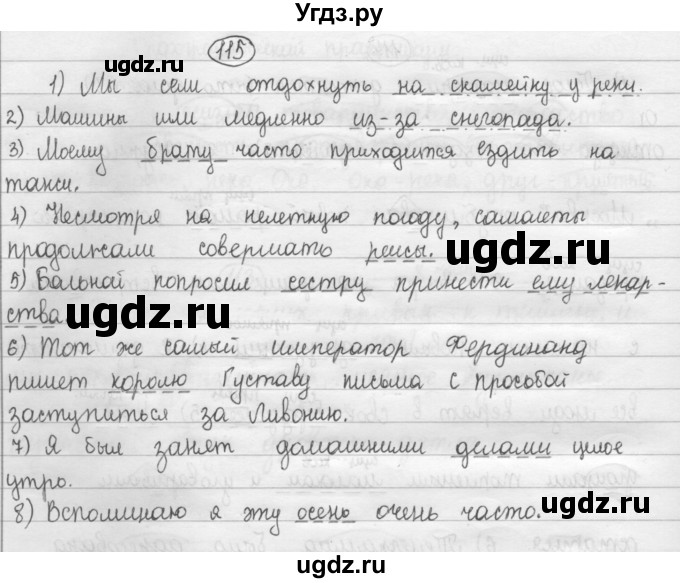 Угдз.ру
115
ugdz.ru
ugdz.ru
1) Мы сели отдохнуть на скамейку у реки.
2) Машины шли медленно из-за снегопада.
3) Моему брату часто приходится ездить на
такси.
4) Несмотря на нелетную погоду, самолеты
продолжали совершать рейсы.
ugdz.ru
5) Больной попросил сестру принести ему лекар-
ства
ugdz.ru
ugdz.ru
6) Тот же самый император Фердинанд
пишет королю Густаву письма с прозьбой
заступиться за Ливонию.
7) Я был занят домашними делами целое
утро.
ugdz.ru
ugdz.ru
8) Вспоминаю я эту осень очень часто.